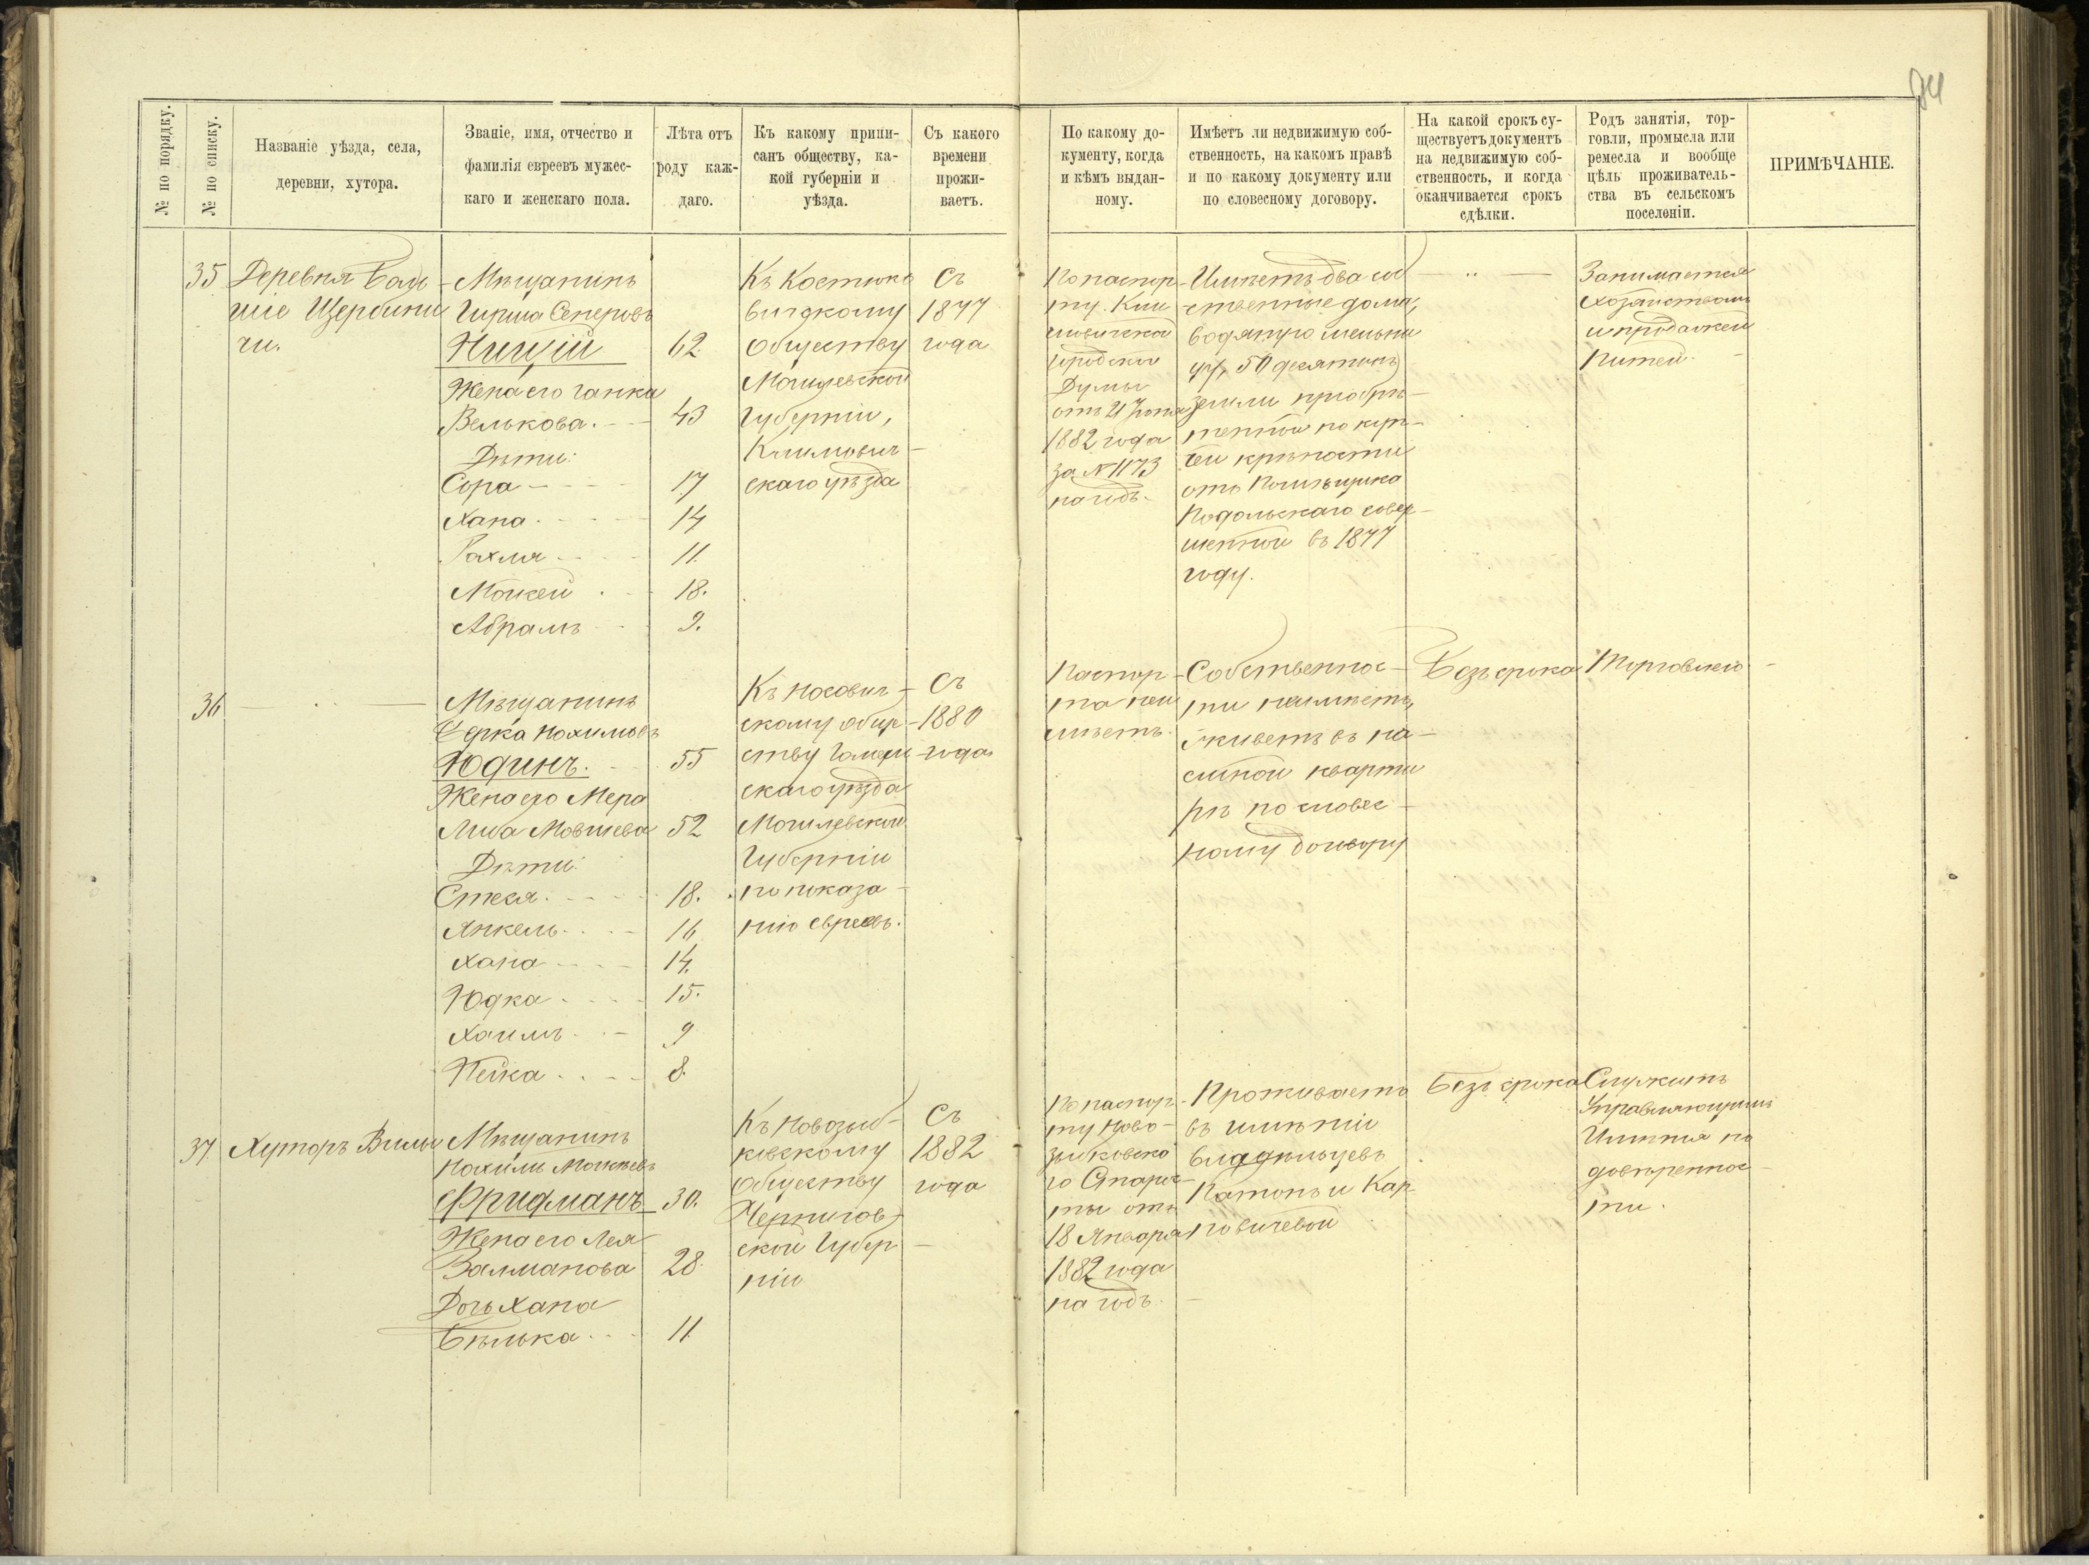 94
№ по порядку.
№ по списку.
Названіе уѣзда, села,
деревни, хутора.
Званіе, имя, отчество и
фамилія евреевъ мужес-
каго и женскаго пола.
Лѣта отъ
роду каж-
даго.
Къ какому припи-
санъ обществу, ка-
кой губерніи и
уѣзда.
Съ какого
времени
прожи-
ваетъ.
По какому до-
кументу, когда
и кѣмъ выдан-
ному.
Имѣетъ ли недвижимую соб-
ственность, на какомъ правѣ
и по какому документу или
по словесному договору.
На какой срокъ су-
ществуетъ документъ
на недвижимую соб-
ственность, и когда
оканчивается срокъ
сдѣлки.
Родъ занятія, тор-
говли, промысла или
ремесла и вообще
цѣль проживатель-
ства въ сельскомъ
поселеніи.
ПРИМѢЧАНІЕ.
35
Деревня Боль
шіе Щербини
чи.
Мѣщанинъ
Гирша
Ницій 62
Жена его Ганка
Велькова. 43
Дѣти:
Сора 17
Хана 14
Рахля 11
Мойсей 18.
Абрамъ 9.
Къ Костюко
вичскому
Обществу
Могилевской
Губерніи,
Климович-
скаго уѣзда
Съ
1877
года
По паспор-
ту Кли
мовичской
Городской
Думы
отъ 21
1882 года
за № 1173
на годъ.
Имѣетъ два соб
ственные дома,
водяную мельни
цу, 50 десятинъ
земли пріобрѣ-
тенной по куп-
чей крѣпости
отъ Помѣщика
Подольскаго совер-
шенной въ 1877
году.
Занимается
Хозяйствомъ
и продажей
Питей.
36
Мѣщанинъ
Берка Нохимовъ
Юдинъ. 55
Жена его Мера
Либа Мовшева 52
Дѣти:
Стеся 18.
Янкель 16
Хана 14.
Юдка 15.
Хаимъ 9
Пейка 8
Къ Носович-
скому обще-
ству Гомель
скаго уѣзда
Могилевской
Губерніи
по показа-
нію евреевъ.
Съ
1880
года
Паспор-
та не и
мѣетъ.
Собственнос-
ти неимѣетъ,
живетъ въ на-
емной кварти
рѣ по словес-
ному договору
Безъ срока
Торговлею
37
Хуторъ
Мѣщанинъ
Нохимъ Моисеевъ
Фридманъ 30.
Жена его Лея
Залманова 28.
Дочь Хана
Бѣлька 11
Къ Новозыб-
ковскому
Обществу
Чернигов-
ской Губер
ніи
Съ
1882
года
По паспор-
ту Ново-
зыбковска
го Старос-
ты отъ
18 Января
1882 года
на годъ.
Проживаетъ
въ имѣніи
владѣльцевъ
и Кар-
повичевой
Безъ срока
Служитъ
Управляющимъ
Имѣнія по
довѣреннос-
ти.